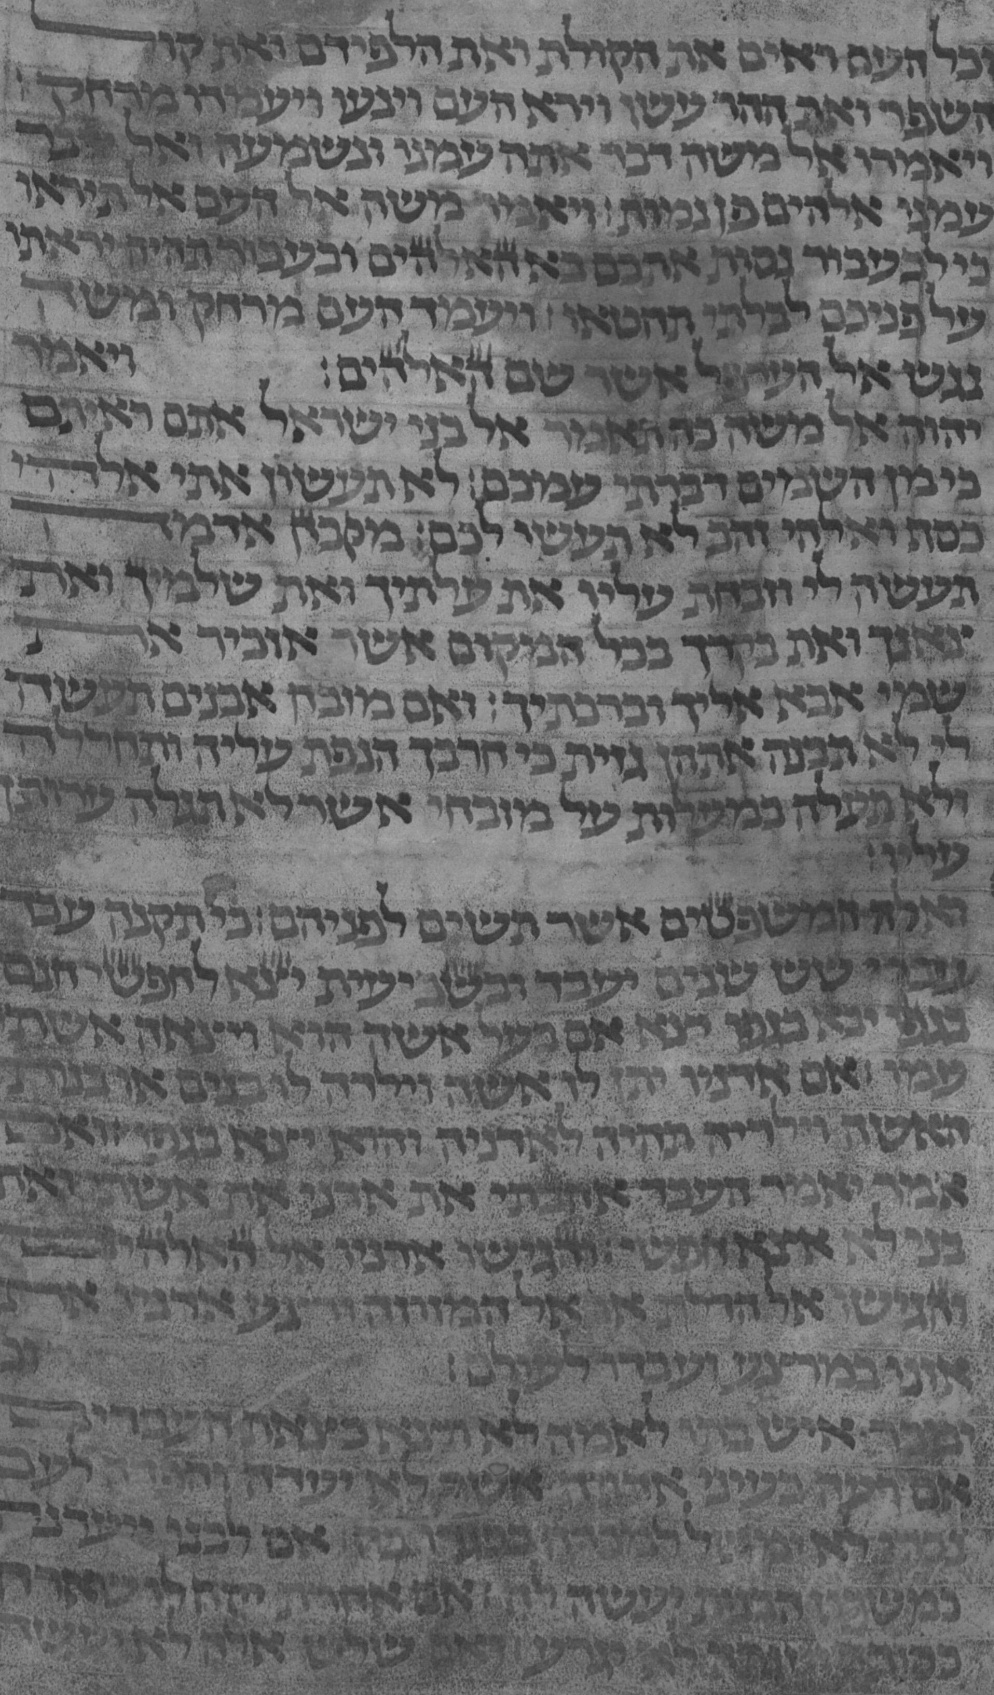 וכל העם ראים את הקולת ואת הלפידם ואת קול
השפר ואת ההר עשן וירא העם וינעו ויעמדו מרחק :
ויאמרו אל משה דבר אתה עמנו ונשמעה ואל ידבר
עמנו אלהים פן נמות : ויאמר משה אל העם אל תיראו
כי לבעבור נסות אתכם בא האלהים ובעבור תהיה יראתו
על פניכם לבלתי תחטאו : ויעמד העם מרחק ומשה
נגש אל הערפל אשר שם האלהים : ויאמר
יהוה אל משה כה תאמר אל בני ישראל אתם ראיתם
כי מן השמים דברתי עמכם : לא תעשון אתי אלהי
כסף ואלהי זהב לא תעשו לכם : מזבח אדמה
תעשה לי וזבחת עליו את עלתיך ואת שלמיך ואת
צאנך ואת בקרך בכל המקום אשר אזכיר את
שמי אבא אליך וברכתיך : ואם מזבח אבנים תעשה
לי לא תבנה אתהן גזית כי חרבך הנפת עליה ותחללה
ולא תעלה במעלות על מזבחי אשר לא תגלה ערותך
עליו :
האלה המשפטים אשר תשים לפניהם : כי תקנה עבד
עברי שש שנים יעבד ובשביעית יצא לחפשי חנם
בגפו יבא בגפו יצא אם בעל אשה הוא ויצאה אשתו
עמו : אם אדניו יתן לו אשה וילדה לו בנים או בנות
האשה וילדיה תהיה לאדניה והוא יצא בגפו : ואם
אמר יאמר העבד אהבתי את אדני את אשתי ואת
בני לא אצא חפשי : והגישו אדניו אל האלהים
והגישו אל הדלת או אל המזוזה ורצע אדניו את
אזנו במרצע ועבדו לעולם : וכי
ימכר איש בתו לאמה לא תצא כצאת העבדים
אם רעה בעיני אדניה אשר לא יעדה והפדה לעם
נכרי לא ימשל למכרה בבגדו בה : אם לבנו ייעדנה
כמשפט הבנות יעשה לה : אם אחרת יקח לו שארה
לא יגרע : ואם שלש אלה לא יעשה